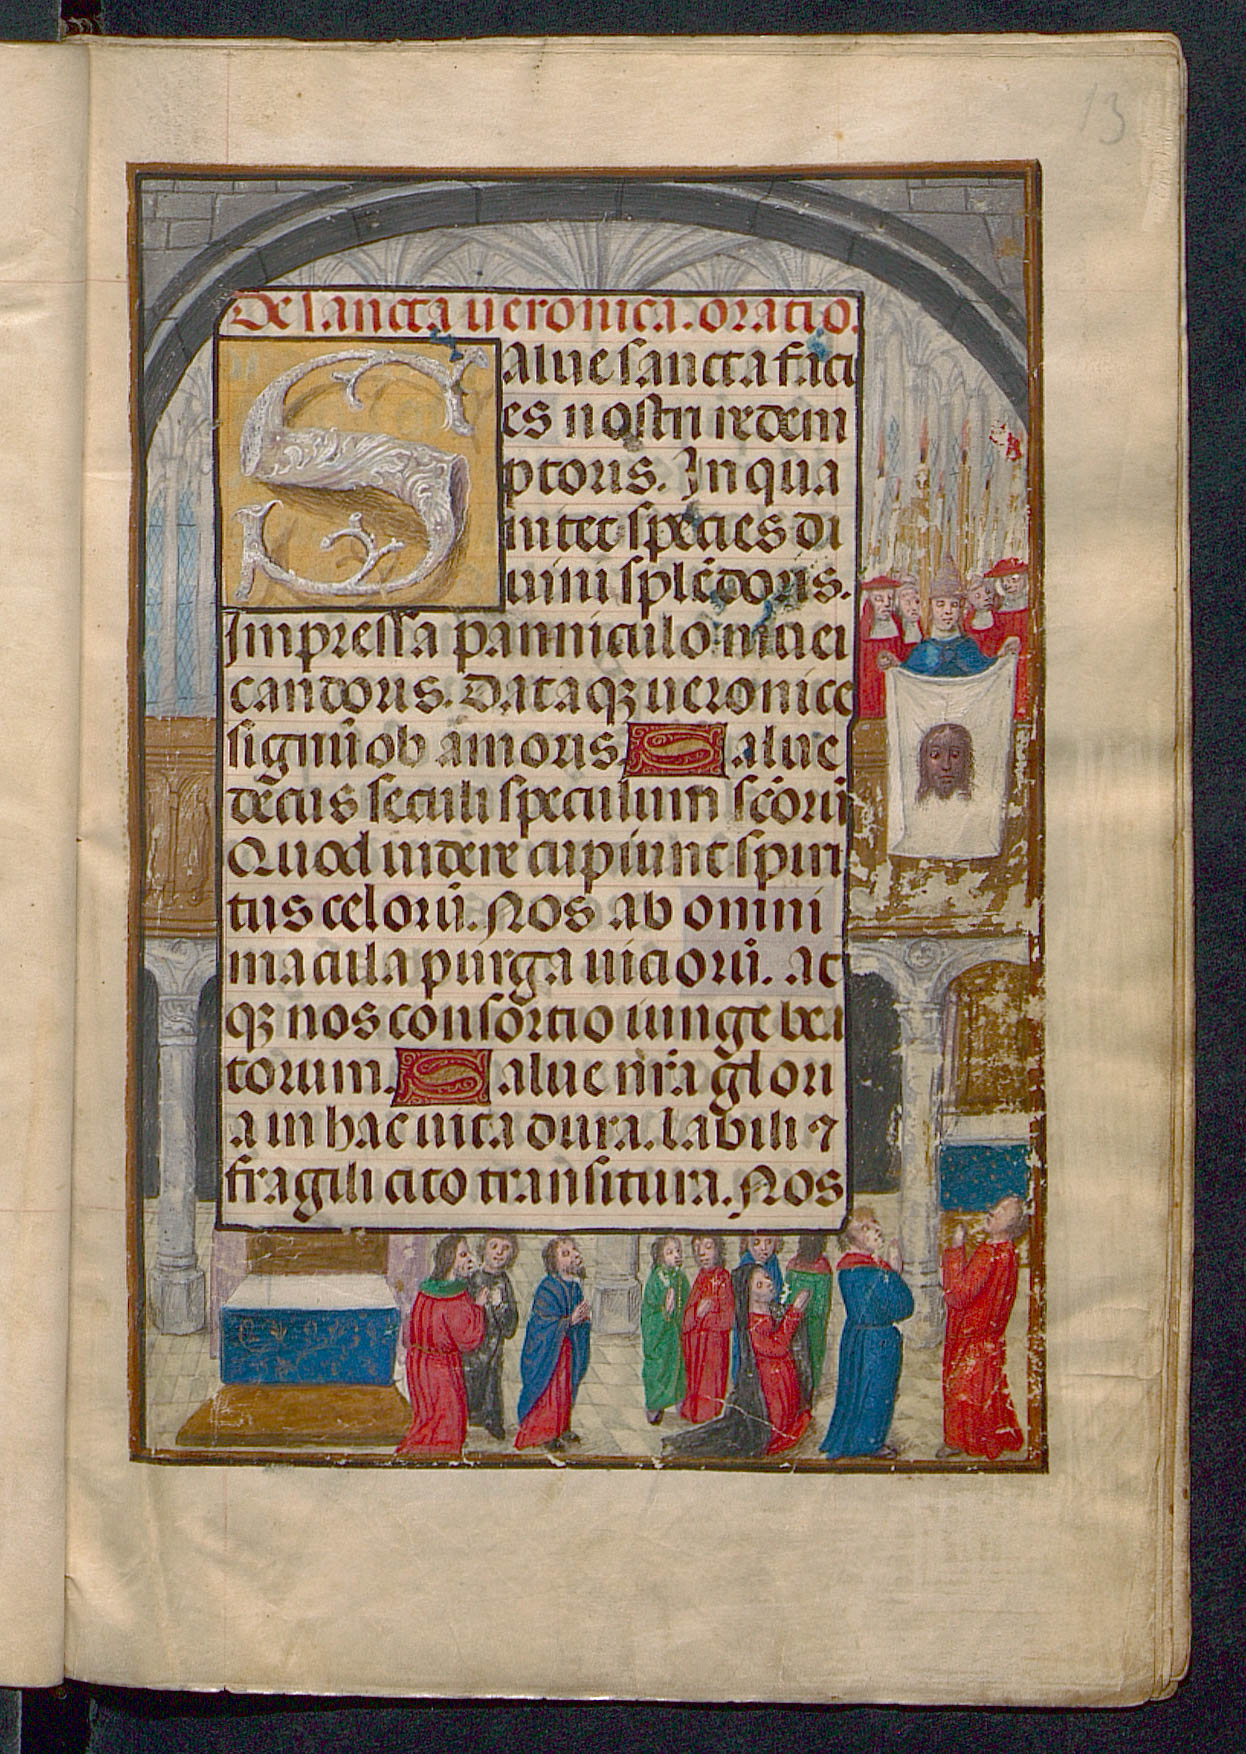 13
De sancta ueronica. oratio.
Salue sancta faci
es nostri redem
ptoris. In qua
nitet species di
uini splēdoris.
Impressa panniculo niuei
candoris. Dataqꝫ ueronice
signū ob amoris Salue
decus seculi speculum scōrū
Quod uidere cupiunt spiri
tus celorū. Nos ab omni
macula purga uiciorū. at
qꝫ nos consortio iunge bea
torum. Salue nr̄a glori
a in hac uita dura. labili ⁊
fragili cito transitura. Nos